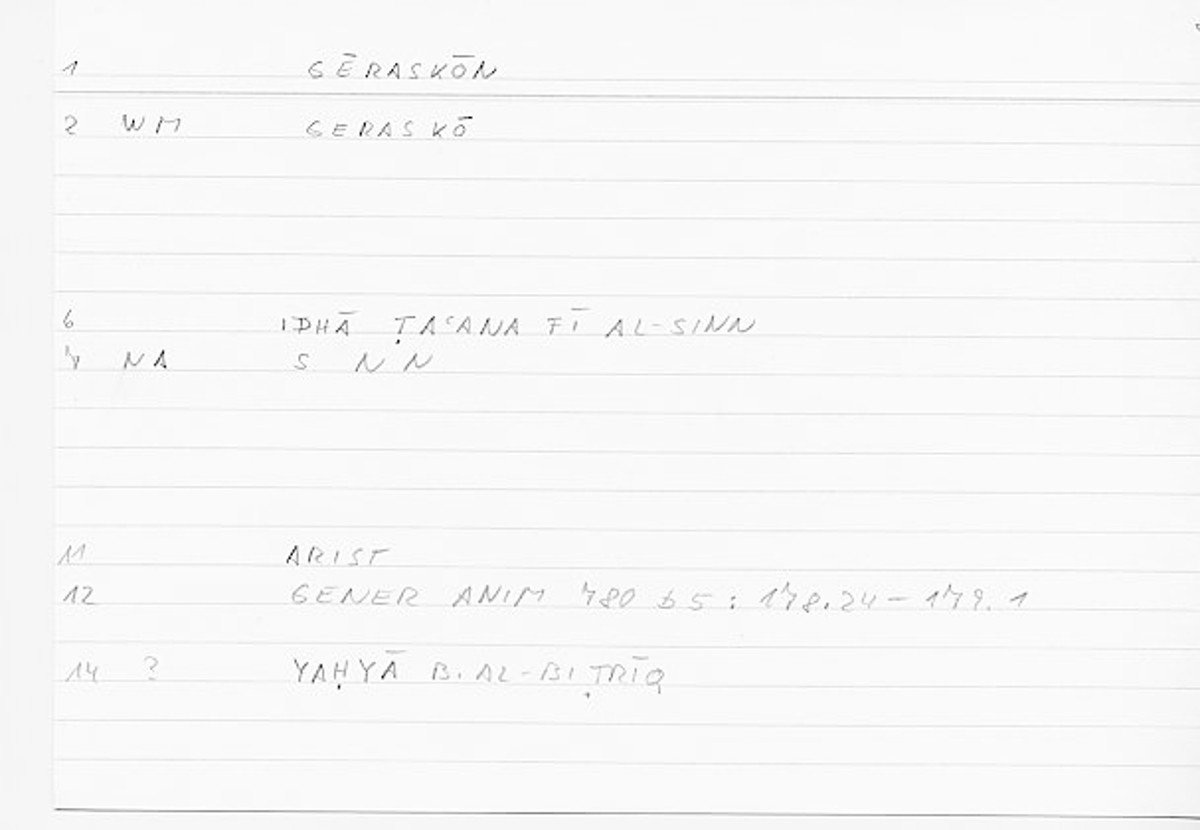 1 GĒRASKŌN
2 WM GERASKŌ
6 IDHĀ ṬAʿANA FĪ AL-SINN
7 NA S NN
11 ARIST
12 GENER ANIM 780 b5: 178.24-179.1
14 ? YAḤYĀ B. AL-BIṬRĪQ